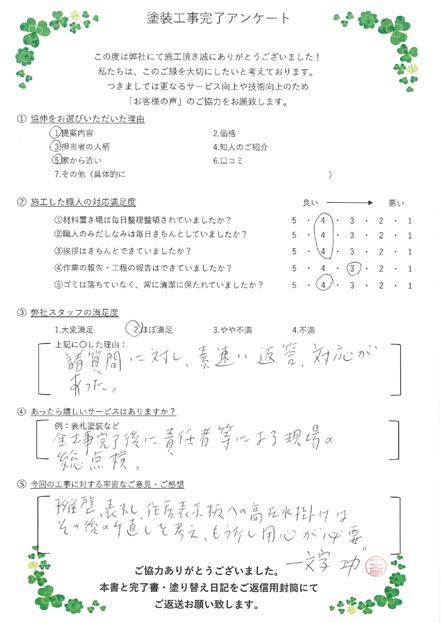 塗装工事完了アンケート
この度は弊社にて施工頂き誠にありがとうございました！
私たちは、このご縁を大切にしたいと考えております。
つきましては更なるサービス向上や技術向上のため
「お客様の声」のご協力をお願致します。
① 協伸をお選びいただいた理由
1.提案内容 2.価格
3.担当者の人柄 4.知人のご紹介
5.家から近い 6.口コミ
7.その他（具体的に ）
② 施工した職人の対応満足度 良い 悪い
①材料置き場は毎日整理整頓されていましたか？ 5 ・ 4 ・ 3 ・ 2 ・ 1
②職人のみだしなみは毎日きちんとしていましたか？ 5 ・ 4 ・ 3 ・ 2 ・ 1
③挨拶はきちんとできていましたか？ 5 ・ 4 ・ 3 ・ 2 ・ 1
④作業の報告・工程の報告はできていましたか？ 5 ・ 4 ・ 3 ・ 2 ・ 1
⑤ゴミは落ちていなく、常に清潔に保たれていましたか？ 5 ・ 4 ・ 3 ・ 2 ・ 1
③ 弊社スタッフの満足度
1.大変満足 2.ほぼ満足 3.やや不満 4.不満
上記に○した理由：
諸質問に対し、素速い返答、対応が
あった。
④ あったら嬉しいサービスはありますか？
例：表札塗装など
全工事完了後に責任者等による現場の
総点検。
⑤ 今回の工事に対する率直なご意見・ご感想
擁壁、表札、住居表示板への高圧水掛けは
その後の手直しを考え、もう少し用心が必要。
一文字 功
ご協力ありがとうございました。
本書と完了書・塗り替え日記をご返信用封筒にて
ご返送お願い致します。